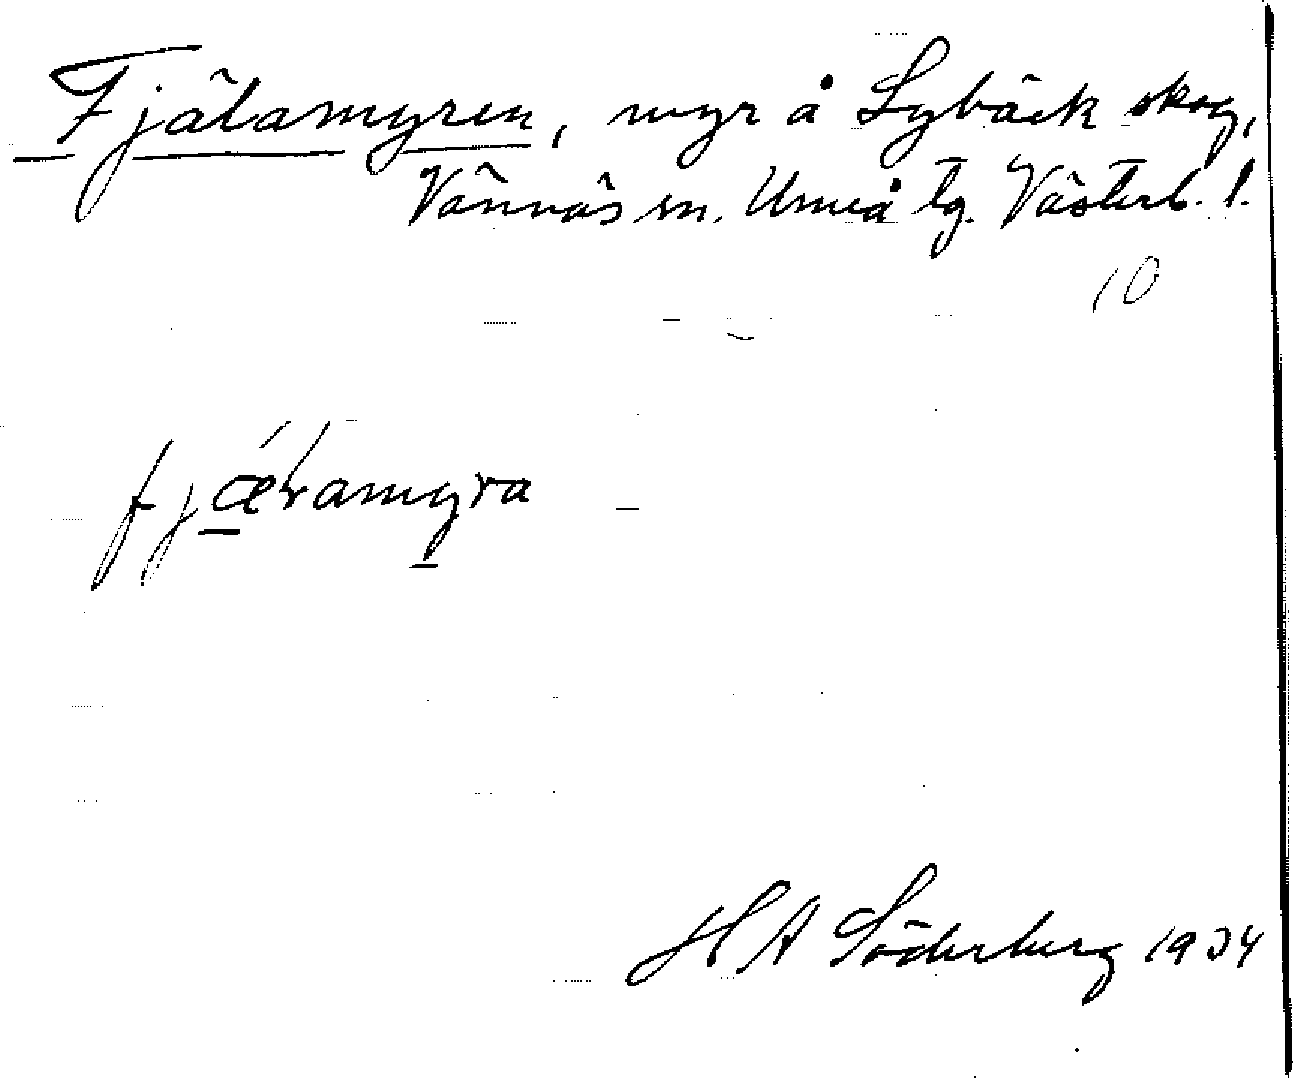 Fjälamyren, myr å Lybäck skog,
Vännäs sn. Umeå tg. Västerb. l.
10
fjæ̲ʹłamyra
H A Söderberg 1934